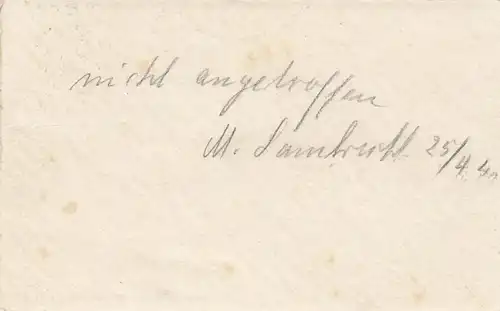 nicht angetroffen
M. Lambrecht 25/4. 40